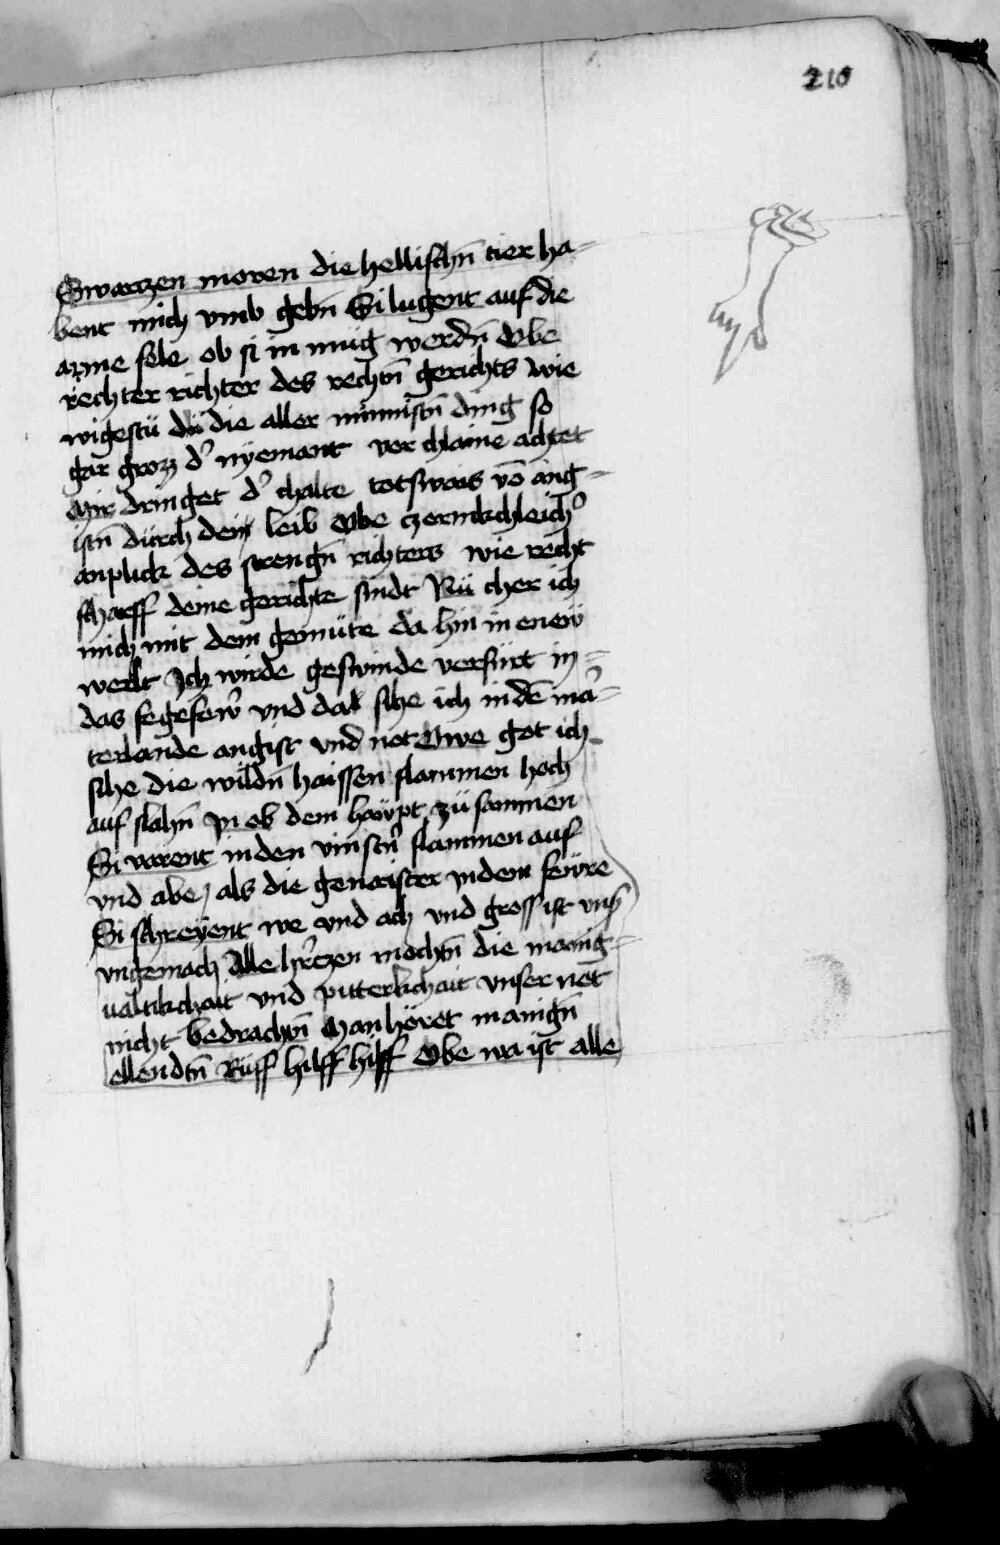 210
Swarczen moren die hellischn̄ tier ha-
bent mich vmb gebn̄ Si lugent auf die
arme sele ob si in müg werdn̄ Obe
rechter richter des rechtn̄ gerichts wie
wigestü dü die aller minnistn̄ ding so
gar grozz d' nyemant vor chlaine achtet
Mir dringet d' chalte totswais vō ang-
istn̄ dürch dein leib Obe czornikchleich'
anplick des strengn̄ richters wie recht
scharff deine gerichte sindt Nü cher ich
mich mit dem gemüte da hin in enew
werlt Ich wirde geswinde verfürt in-
das fegefew' vnd da sihe ich in dē ma'-
terlande angist vnd not Owe got ich
sihe die wildn̄ haissen flammen hoch
auf slahn̄ In ob dem haupt zü sammen
Si varent in den vinst'n flammen auf
vnd abe als die genaister in dem fewre
Si schreyent we vnd ach vnd gross ist vns'
vngemach Alle h'rczen mochtn̄ die manig-
ualtikchait vnd pitterkchait vnser not
nicht bedrachtn̄ Man höret manign̄
ellendtn̄ Rüff hilff hilff Obe wa ist alle